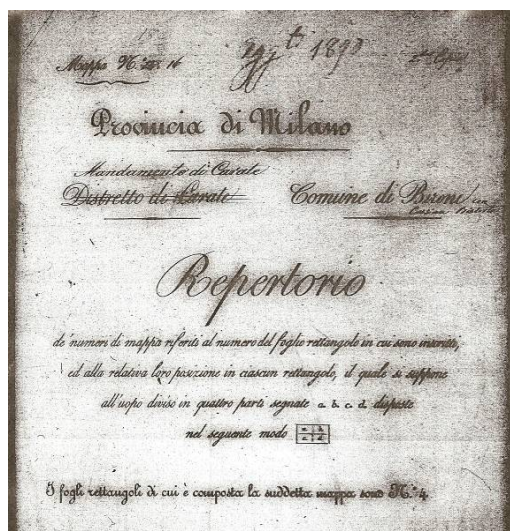 Mappa N.° 16
1890
Provincia di Milano
Mandamento di Carate
Distretto di Carate
Comune di
Repertorio
de' numeri di mappa riferiti al numero del foglio rettangolo in cui sono inscritti,
ed alla relativa loro posizione in ciascun rettangolo, il quale si suppone
all'uopo diviso in quattro parti segnate a. b. c. d. disposte
nel seguente modo
a b
c d
I fogli rettangoli di cui è composta la suddetta mappa sono N.° 4.